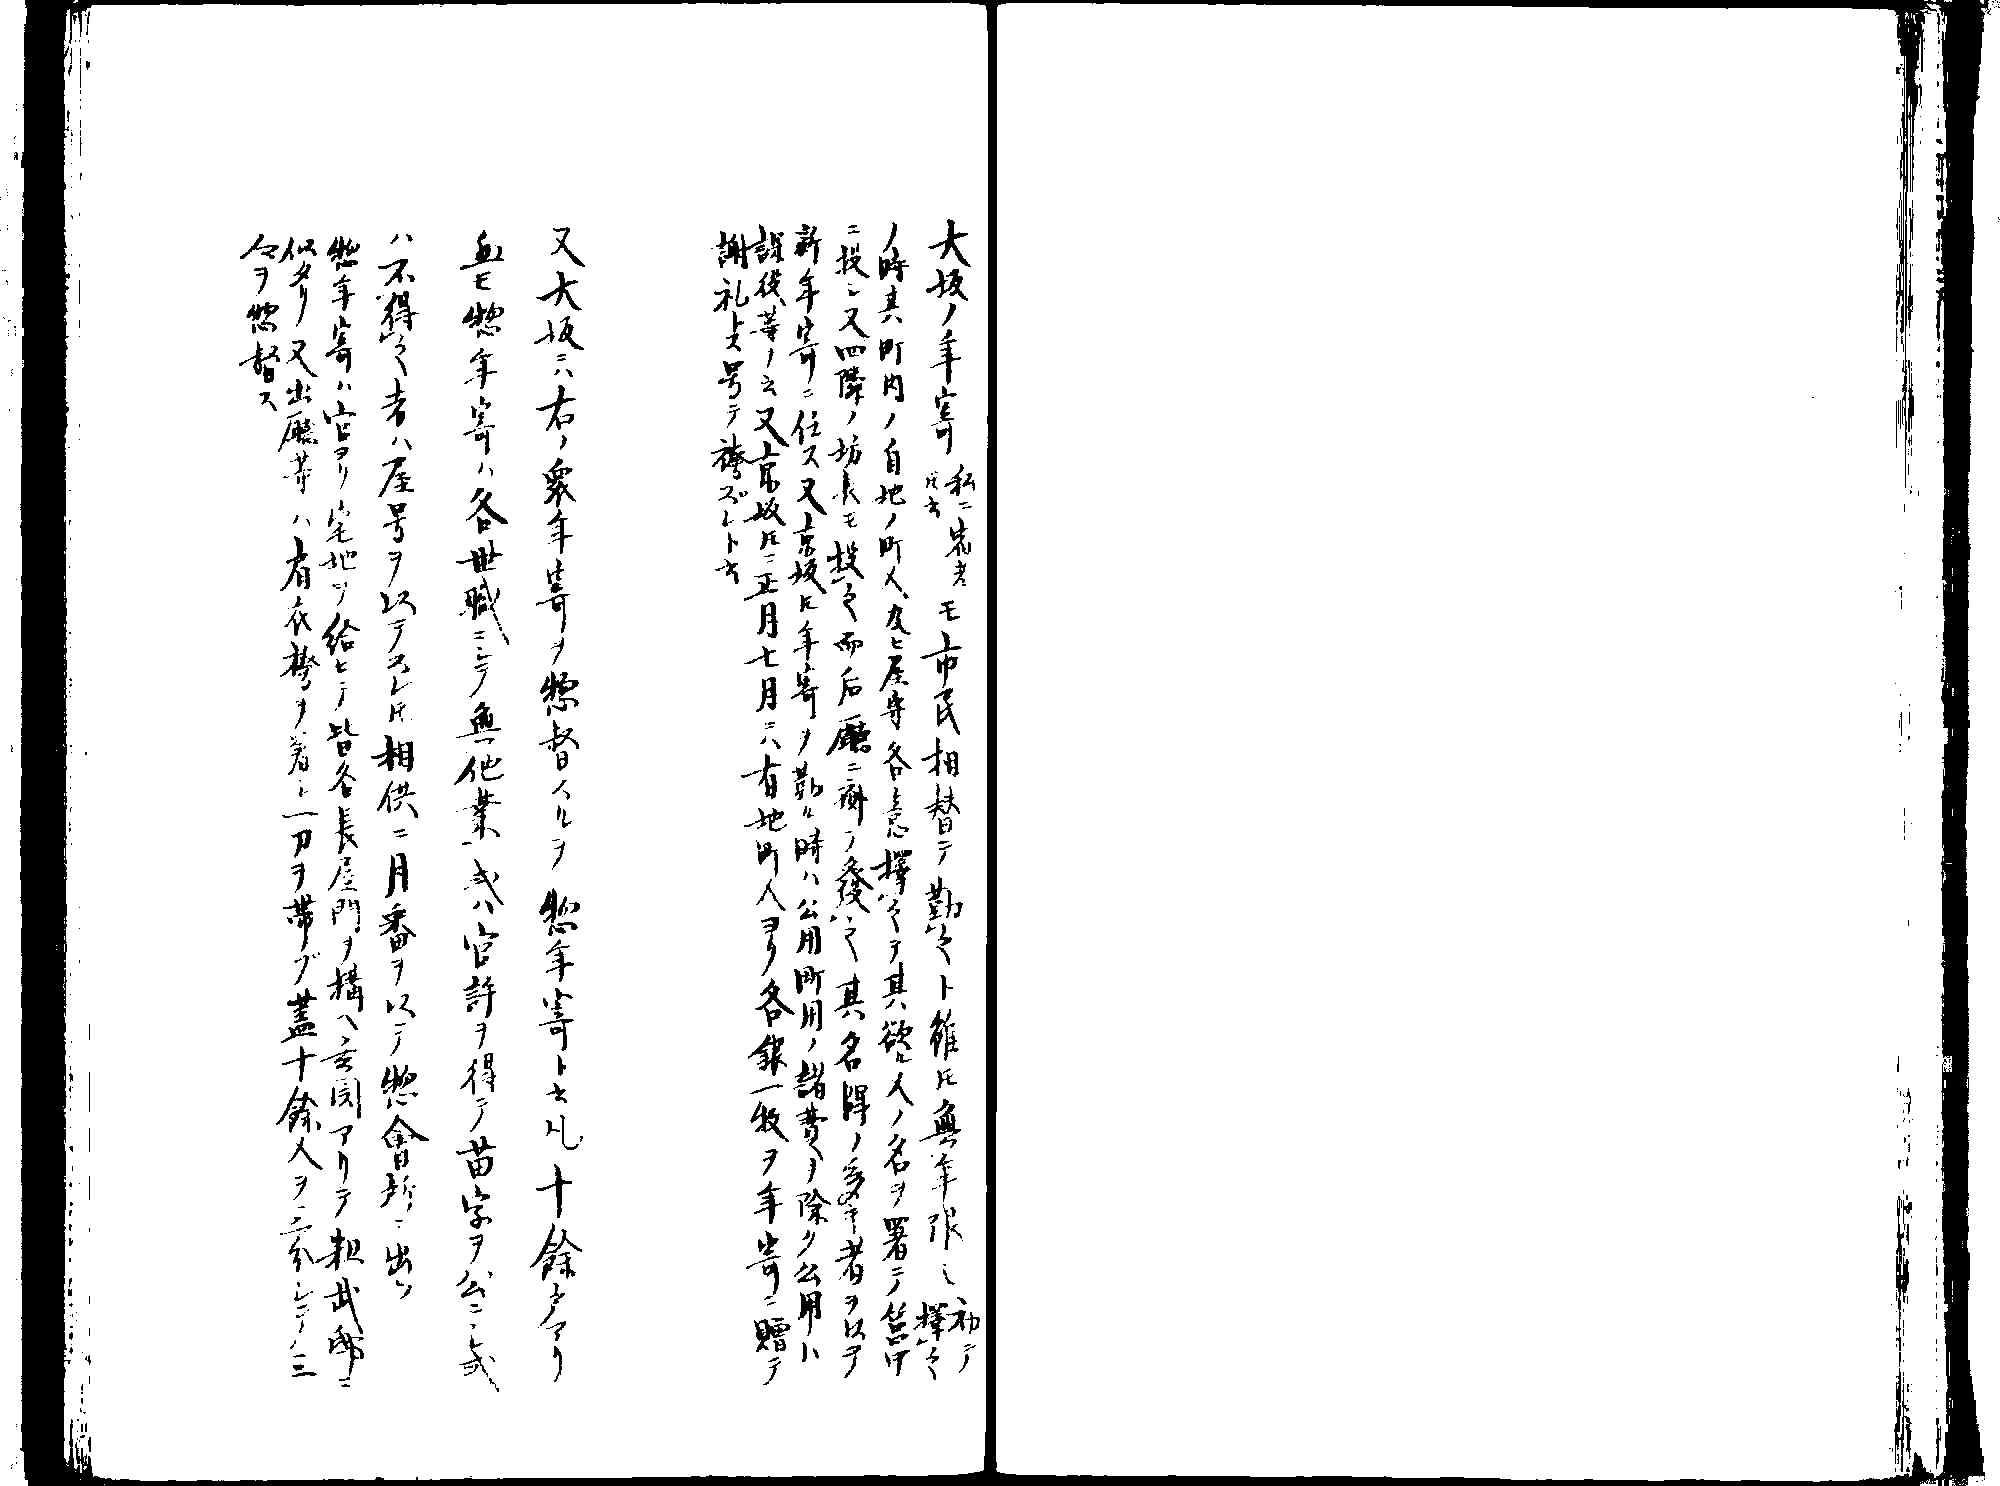 大坂ノ年寄私ニ宿老𪜈云モ市民相替テ勤之ト雖𪜈無年限シ初テ擇之
ノ時其町内ノ自地ノ町人及ヒ屋守各意擇之テ其欲ル人ノ名ヲ署シテ筥中
ニ投シ又四隣ノ坊長モ投之而后廳ニ齎シテ發之其名開ノ多キ者ヲ以テ
新年寄ニ任ス又京坂𪜈年寄ヲ勤ル時ハ公用町用ノ諸費ヲ除ク公用ト
課役等ノ云又京坂𪜈ニ正月七月ニハ有地町人ヨリ各銀一枚ヲ年寄ニ贈テ
謝礼トス号テ袴ズレト云
又大坂ニハ右ノ衆年寄ヲ惣督スルヲ惣年寄ト云凡十餘戸アリ
無モ惣年寄ハ各世職ニシテ無他業或ハ官許ヲ得テ苗字ヲ公ニシ或
ハ不得之者ハ屋号ヲ以テスレ𪜈相供ニ月番ヲ以テ惣會所ニ出ツ
惣年寄ハ官ヨリ宅地ヲ給ヒテ皆各長屋門ヲ構ヘ玄関アリテ粗武邸ニ
似タリ又出廳等ハ肩衣袴ヲ着シ一刀ヲ帯ブ蓋十餘人ヲ三分シテ三
々ヲ惣督ス